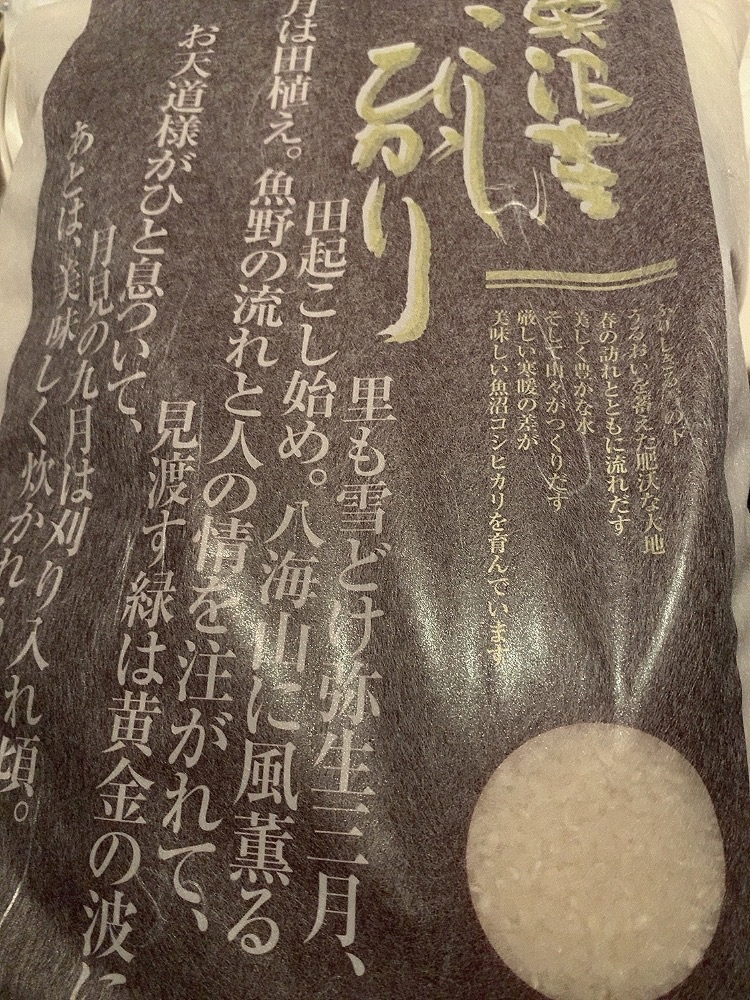 沼産
こし
ひかり
うるおいを蓄えた肥沃な大地
春の訪れとともに流れだす
美しく豊かな水
そして山々がつくりだす
厳しい寒暖の差が
美味しい魚沼コシヒカリを育んでいます
里も雪どけ弥生三月、
田起こし始め。八海山に風薫る
月は田植え。魚野の流れと人の情を注がれて、
お天道様がひと息ついて、見渡す緑は黄金の波に
月見の九月は刈り入れ頃。
あとは、美味しく炊かれ